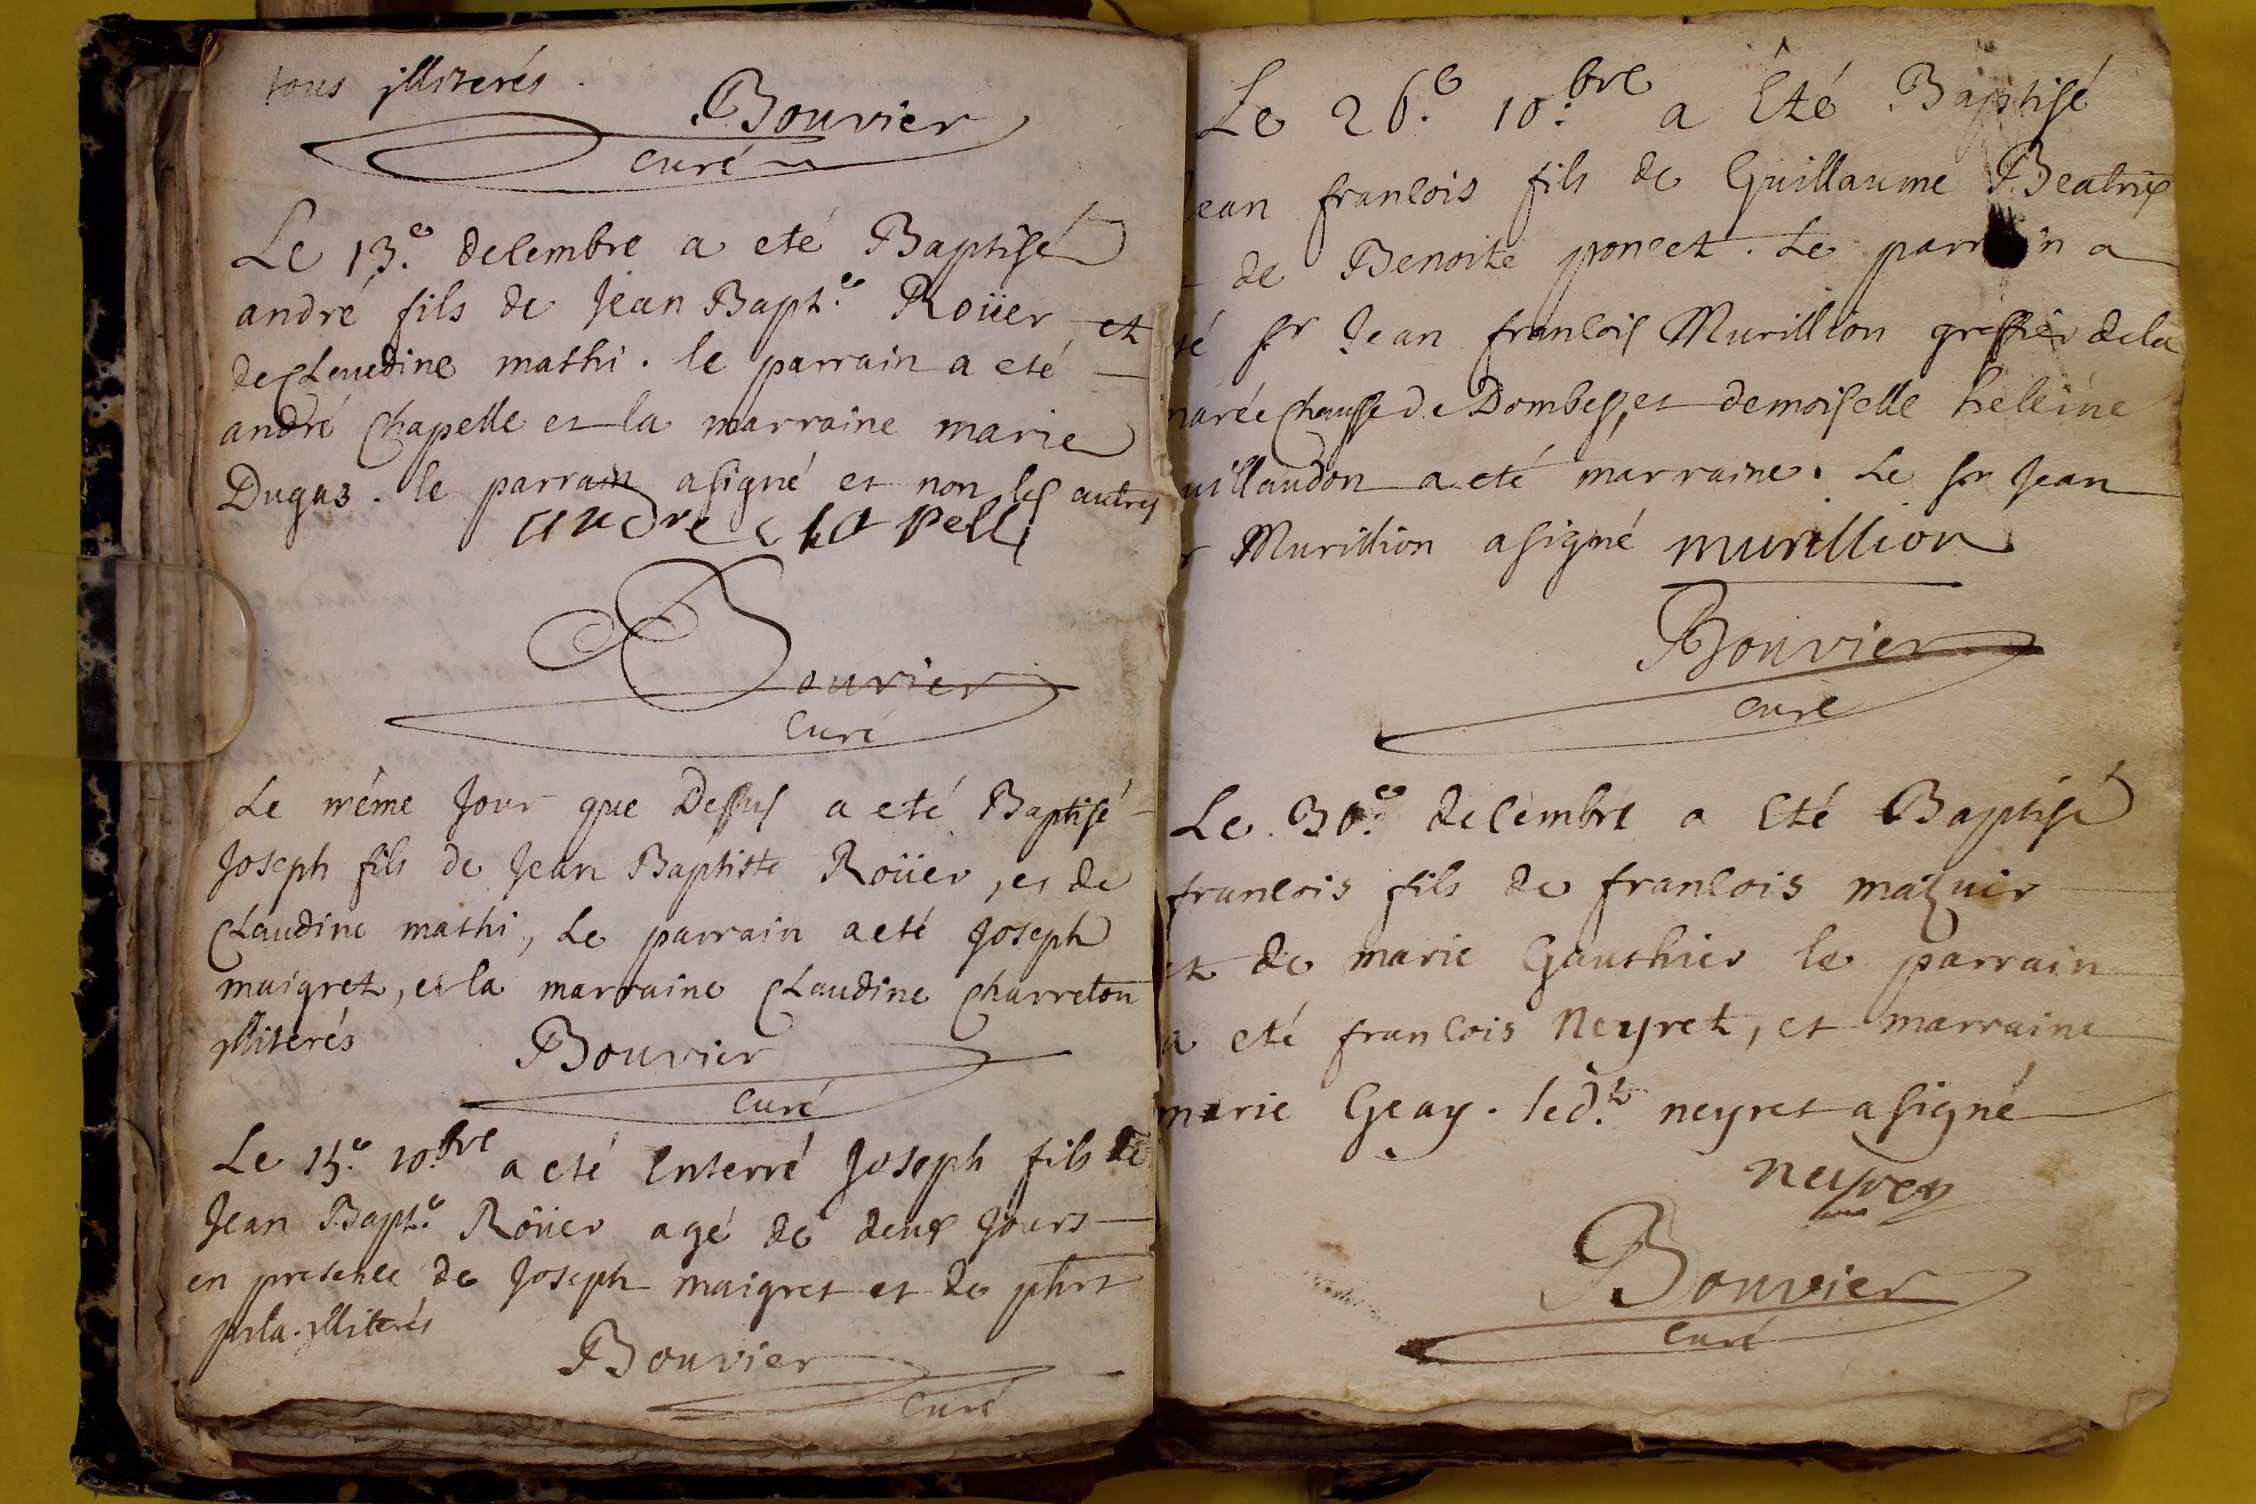 tous jlliterés.
Bouvier
curé
Le 13.e decembre a eté Baptisé
andré fils de Jean Bapt.e Roüer et
de Claudine mathi. le parrain a eté
andré Chapelle et la marraine marie
Dugas. le parrain a signé et non les autres
andre chapelle
Bouvier
Curé
Le méme Jour que Dessus a eté Baptisé
Joseph fils de Jean Baptiste Roüer, et de
Claudine mathi, Le parrain a eté Joseph
maigret, et la marraine Claudine Charreton
jlliterés
Bouvier
curé
Le 15.e 10.bre a eté Enterré Joseph fils de
Jean Bapt.e Roüer agé de deux Jours
en presence de Joseph maigret et de
jlliterés
Bouvier
Curé
Le 26.e 10.bre a Eté Baptisé
Jean francois fils de Guillaume Beatrix
de Benoite poncet. Le parrain a
té sr Jean francois Murillion greffier de la
marée Chaussée de Dombes, et demoiselle heleine
uillaudon a eté marraine. Le sr Jean
r Murillion a signé murillion
Bouvier
curé
Le 30.e decembre a Eté Baptisé
francois fils de francois mazuir
et de marie Gauthier le parrain
a eté francois Neyret, et marraine
marie Geay. led.t neyret a signé
neyret
Bouvier
Curé